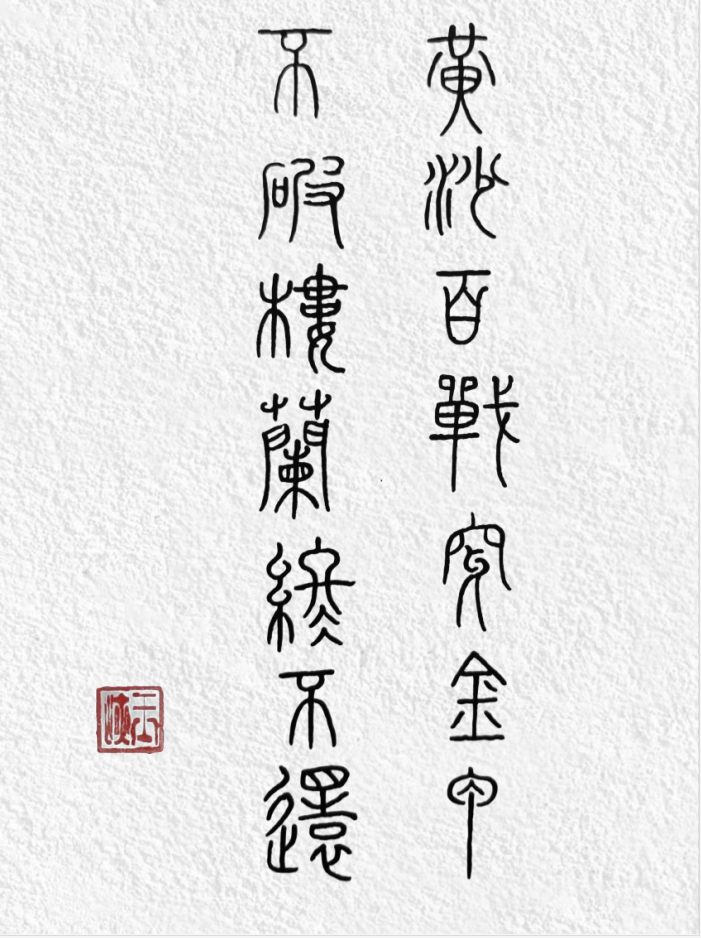 黃沙百戰穿金甲
不破樓蘭終不還